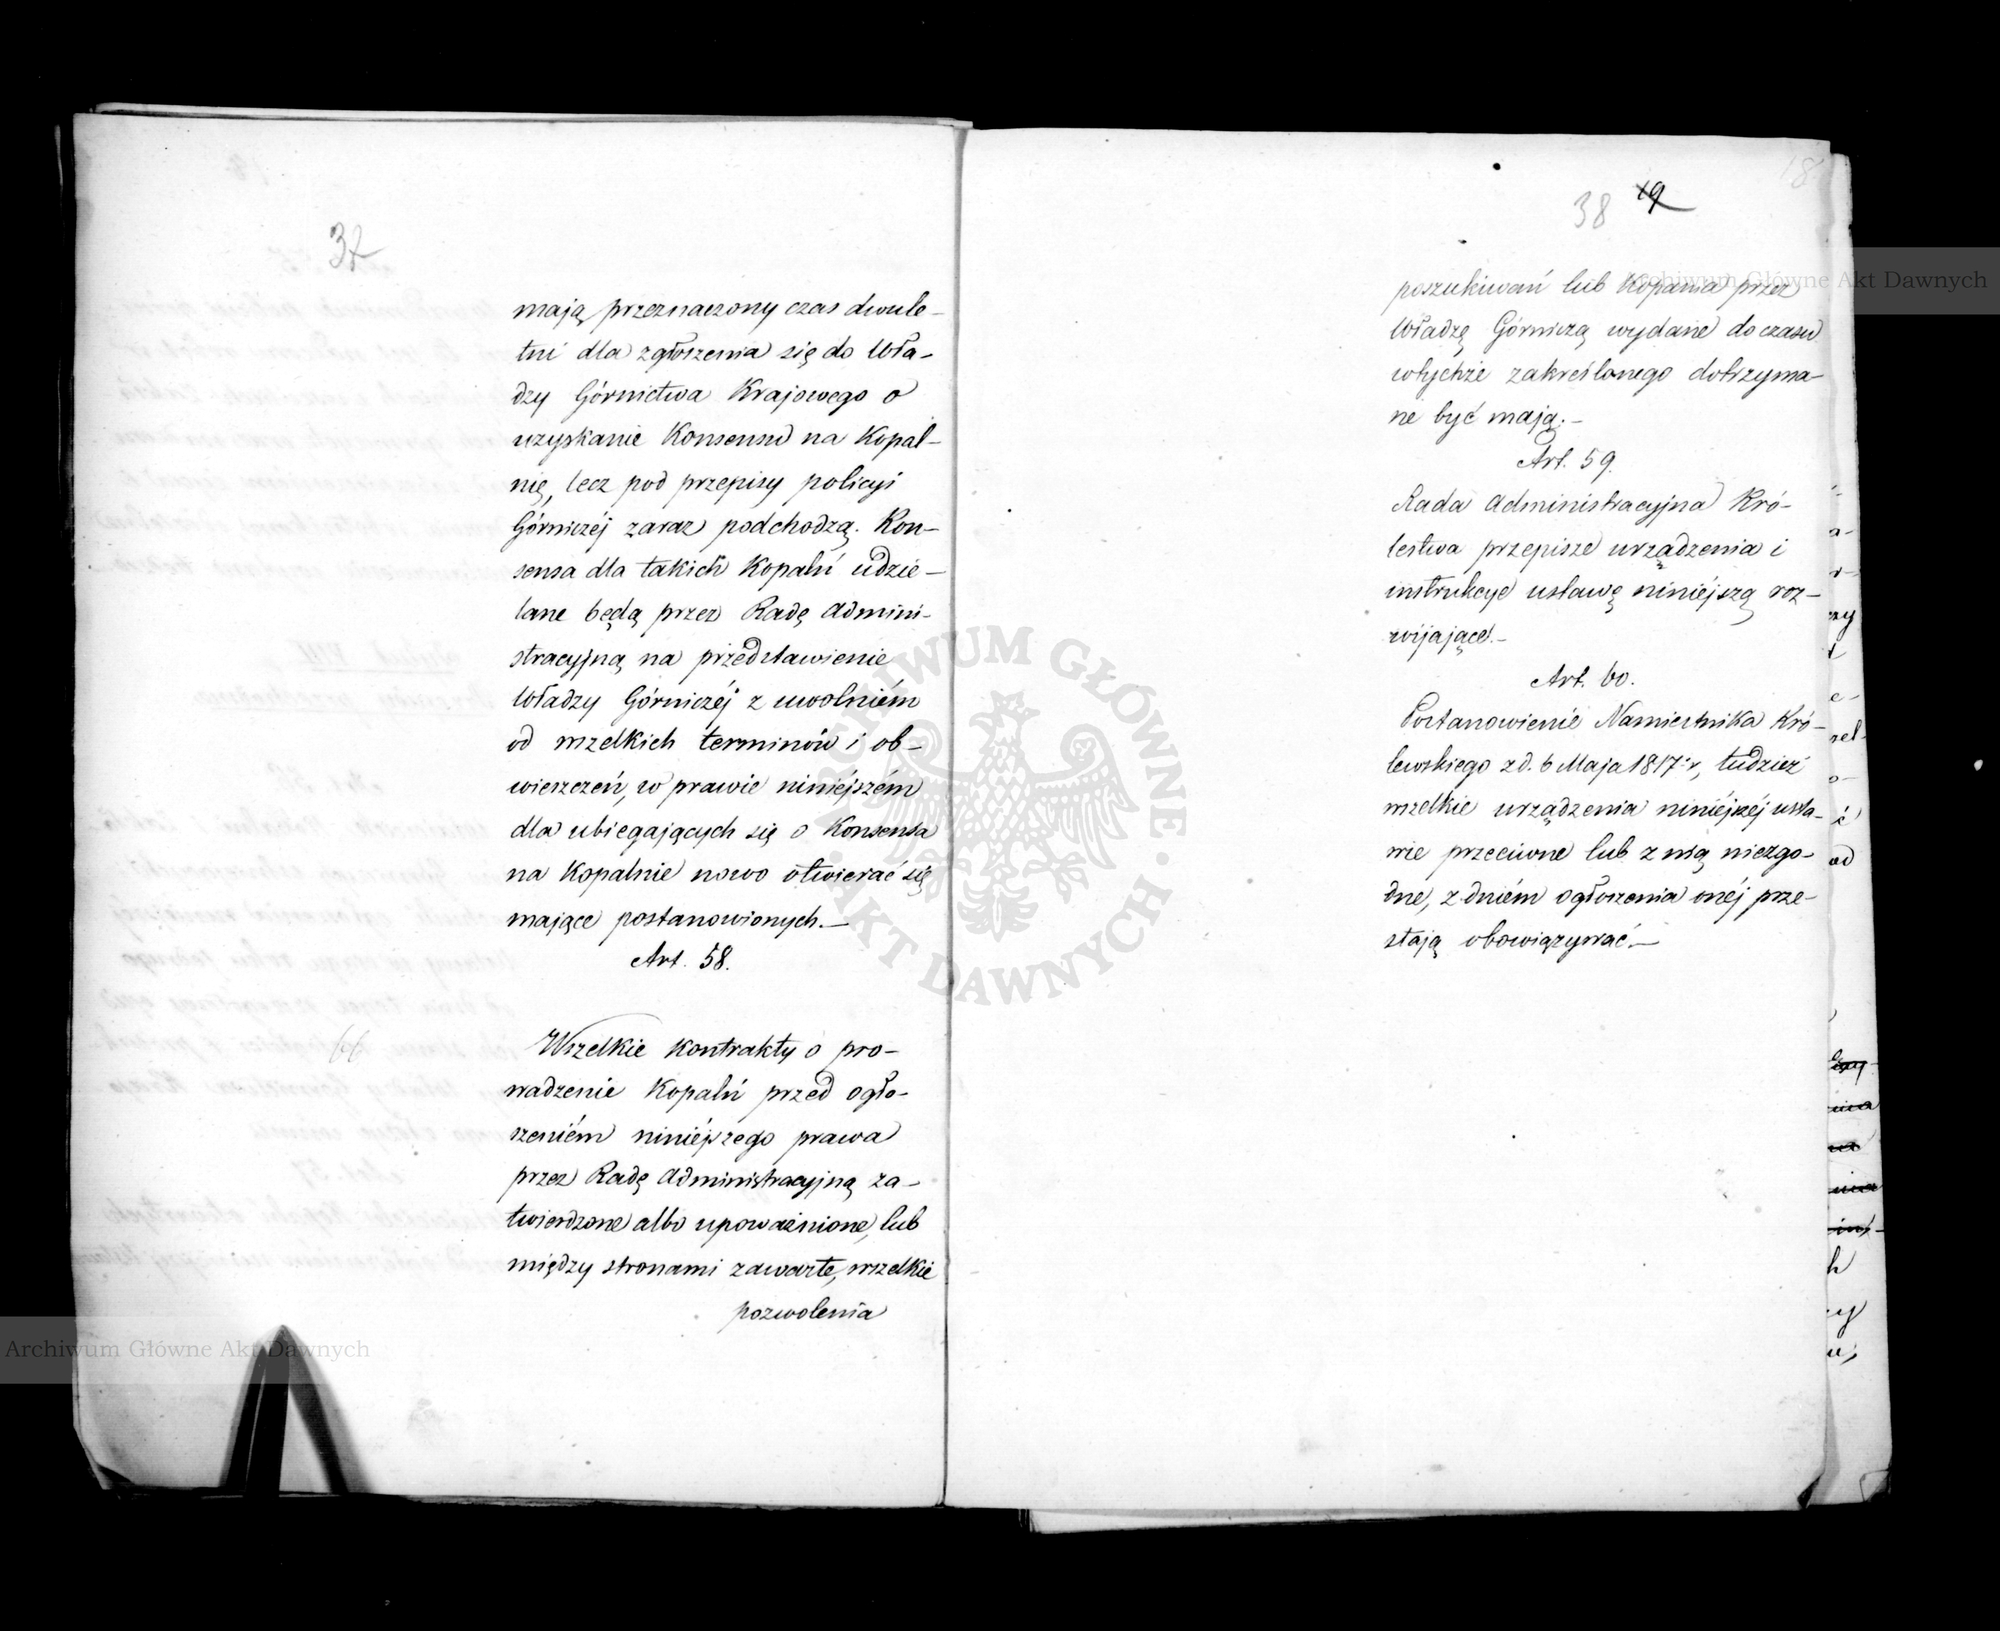 37
mają przeznaczony czas dwule-
tni dla zgłoszenia się do Wła-
dzy Górnictwa Krajowego o
uzyskanie Konsensu na Kopal-
nię, lecz pod przepisy policyi
Górniczéj zaraz podchodzą. Kon-
sensa dla takich Kopalń udzie-
lane będą przez Radę Admini-
stracyjną na przedstawienie
Władzy Górniczéj z uwolniém
od wszelkich terminów i ob-
wieszczeń, w prawie niniéjszém
dla ubiegających się o Konsensa
na Kopalnie nowo otwierać się
mające postanowionych.-
Art. 58.
66
Wszelkie Kontrakty o pro-
wadzenie Kopalń przed ogło-
szeniém niniéjszego prawa
przez Radę Administracyjną za-
twierdzone albo upoważnione, lub
między stronami zawarte, wszelkie
pozwolenia
18
38 19
poszukiwań lub Kopania przez
Władzę Górniczą wydane do czasu
wtychże zakreślonego dotrzyma-
ne być mają.-
Art. 59.
Rada Administracyjna Kró-
lestwa przepisze urządzenia i
instrukcye ustawę niniéjszą roz-
wijające.-
Art. 60.
Postanowienie Namiestnika Kró-
lewskiego z d. 6 Maja 1817 r, tudzież
wszelkie urządzenia niniéjszéj usta-
wie przeciwne lub z nią niezgo-
dne, z dniém ogłoszenia onéj prze-
stają obowiązywać.-
Archiwum Główne Akt Dawnych
ARCHIWUM GŁÓWNE · AKT DAWNYCH ·
Archiwum Główne Akt Dawnych